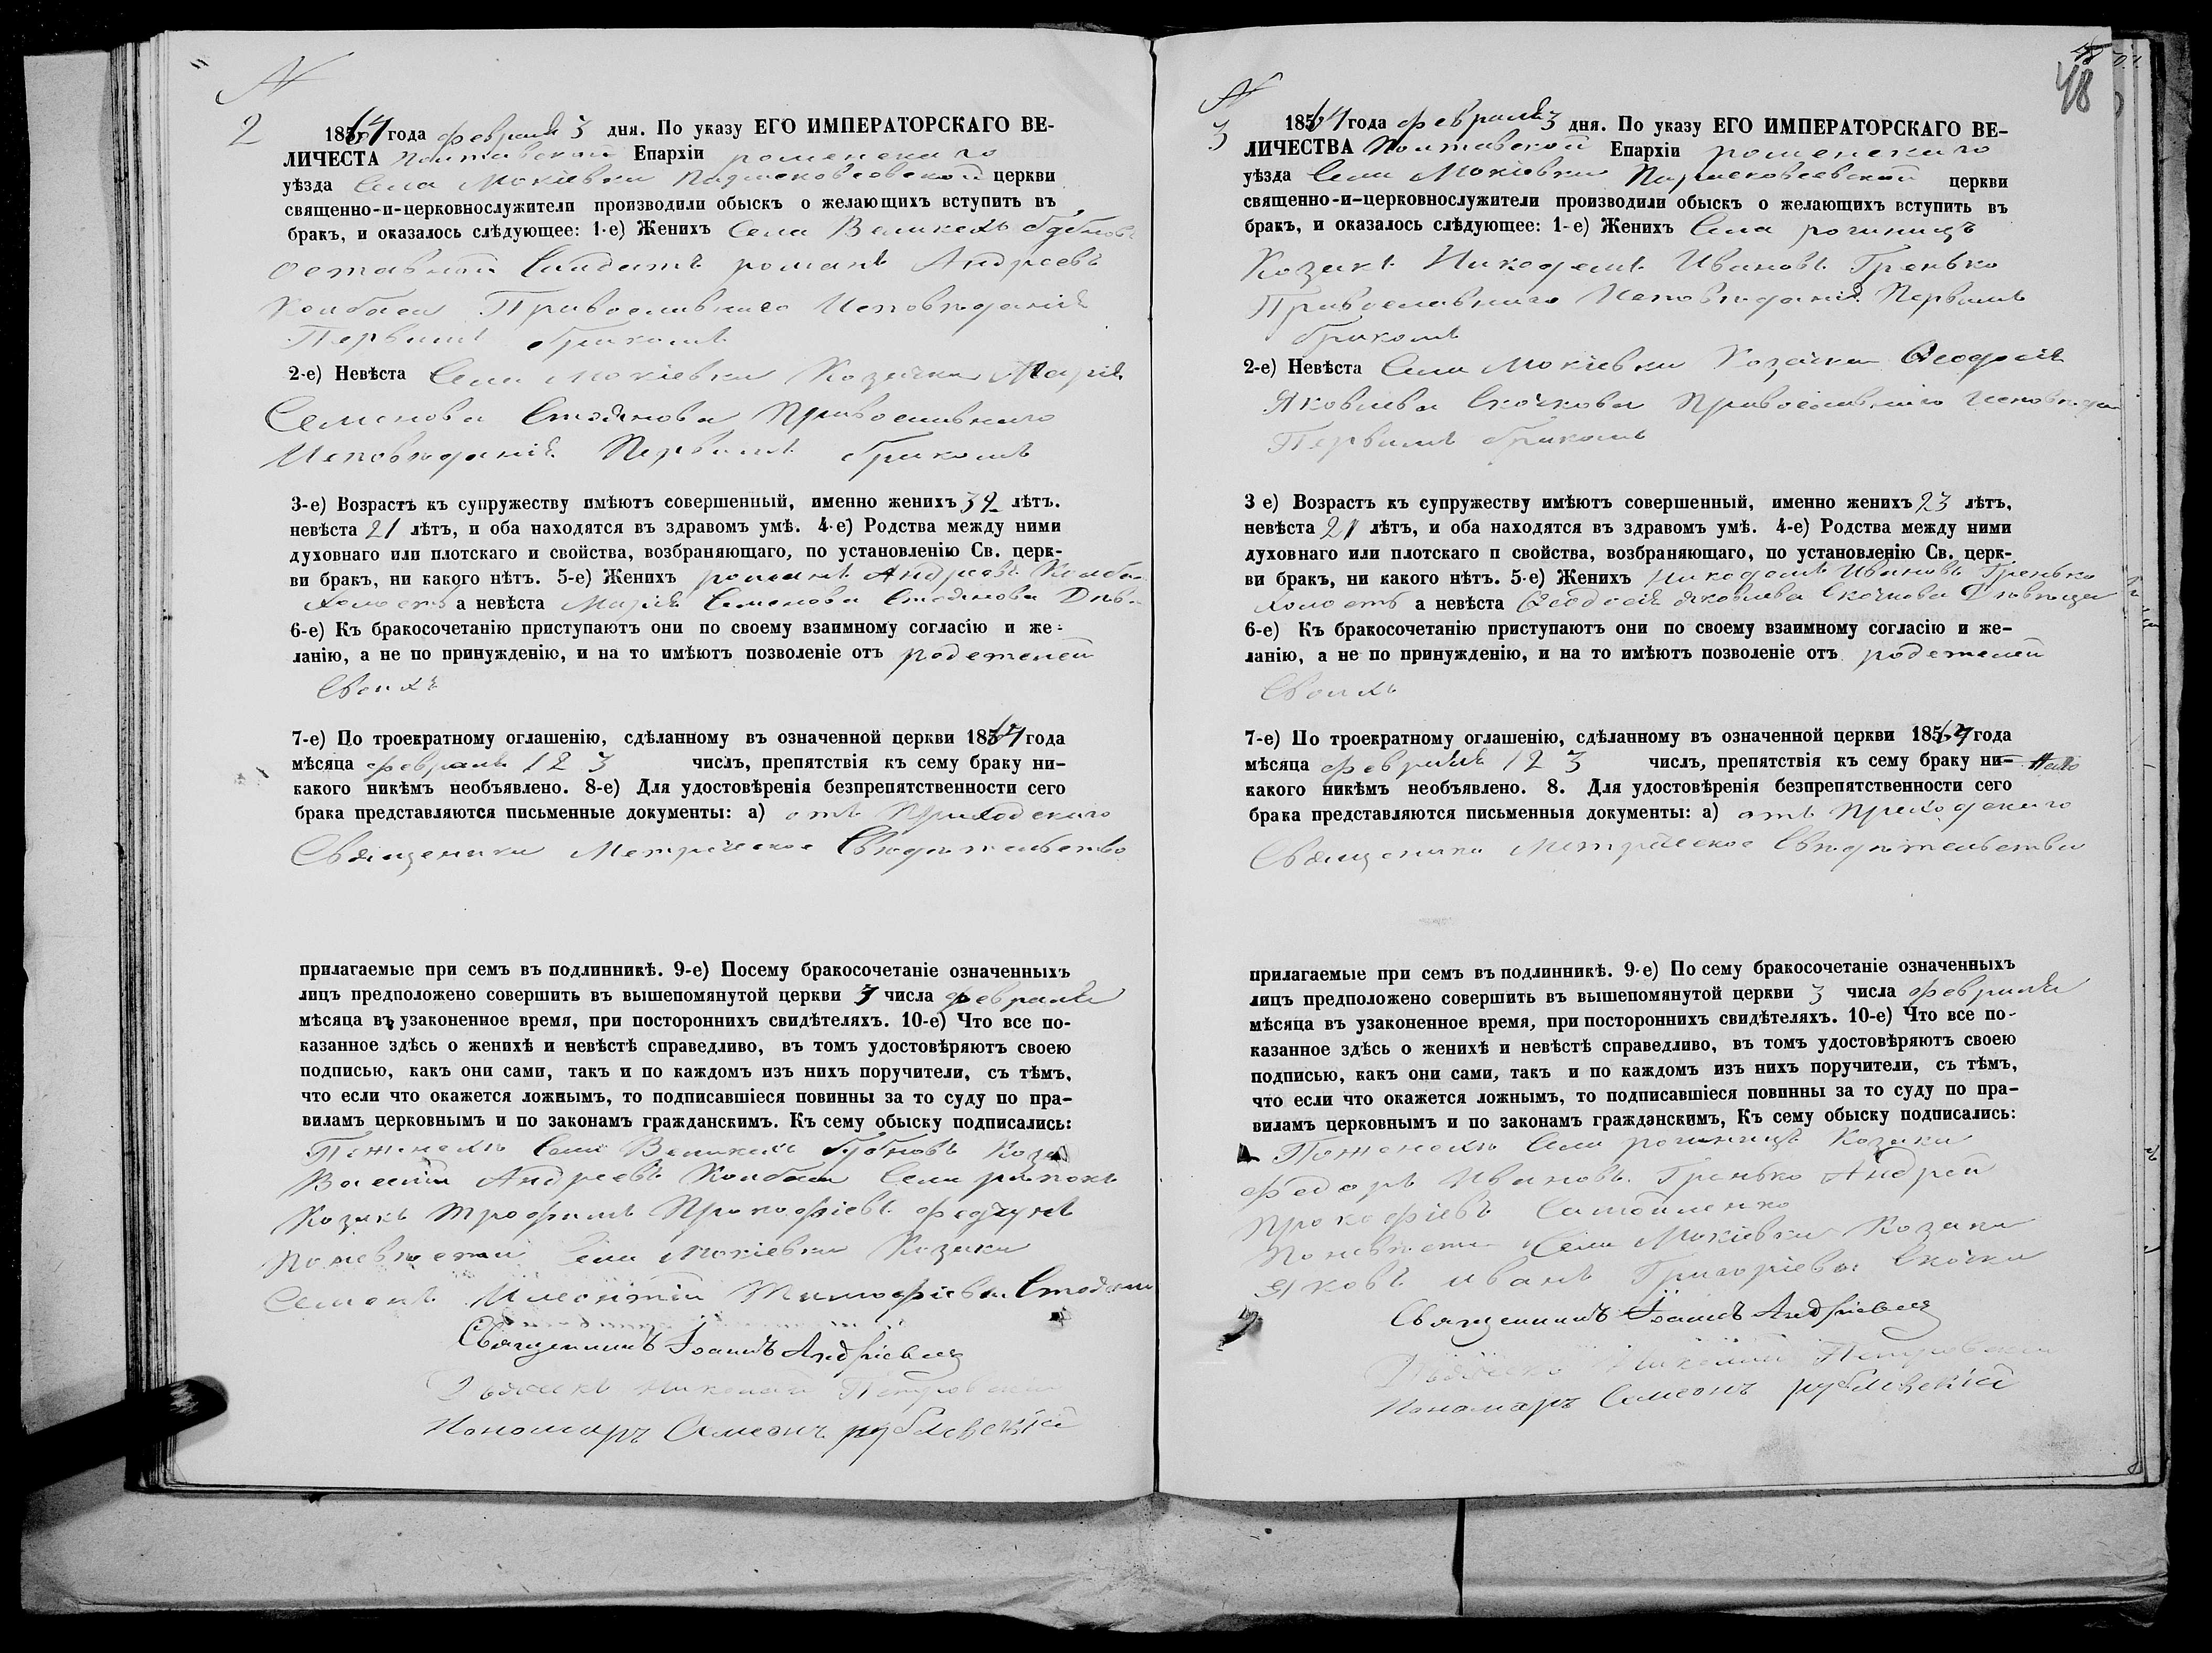 №
2
1864 года февраля 3 дня. По указу ЕГО ИМПЕРАТОРСКАГО ВЕ-
ЛИЧЕСТА Полтавской Епархіи роменскаго
уѣзда Села Мокіевки церкви
священно-и-церковнослужители производили обыскъ о желающихъ вступить въ
бракъ, и оказалось слѣдующее: 1-е) Женихъ Села Великихъ Бубновъ
оставной Салдатъ романъ Андреевъ
Колбаса Православнаго Исповѣданія
Первымъ бракомъ
2-е) Невѣста Села Мокіевки Козачка Марія
Семенова Православнаго
Исповѣданія Первымъ бракомъ
3-е) Возрастъ къ супружеству имѣютъ совершенный, именно женихъ 32 лѣтъ.
невѣста 21 лѣтъ, и оба находятся въ здравомъ умѣ. 4-е) Родства между ними
духовнаго или плотскаго и свойства, возбраняющаго, по установленію Св. церк-
ви бракъ, ни какого нѣтъ. 5-е) Женихъ романъ Андреевъ
Холостъ а невѣста Марія Семенова
6-е) Къ бракосочетанію приступаютъ они по своему взаимному согласію и же-
ланію, а не по принужденію, и на то имѣютъ позволеніе отъ родетелей
Своихъ
7-е) По троекратному оглашенію, сдѣланному въ означенной церкви 1864 года
мѣсяца февраля 1 2 3 числъ, препятствія къ сему браку ни-
какого никѣмъ необъявлено. 8-е) Для удостовѣренія безпрепятственности сего
брака представляются письменные документы: а) отъ Приходскаго
Священика Метрическое Свѣдѣтельство
прилагаемые при семъ въ подлинникѣ. 9-е) Посему бракосочетаніе означенныхъ
лицъ предположено совершить въ вышепомянутой церкви 3 числа февраля
мѣсяца въ узаконенное время, при постороннихъ свидѣтеляхъ. 10-е) Что все по-
казанное здѣсь о женихѣ и невѣстѣ справедливо, въ томъ удостовѣряютъ своею
подписью, какъ они сами, такъ и по каждомъ изъ нихъ поручители, съ тѣмъ,
что если что окажется ложнымъ, то подписавшіеся повинны за то суду по пра-
виламъ церковнымъ и по законамъ гражданскимъ. Къ сему обыску подписались:
Поженехѣ Села Великихъ Бубновъ
Андреевъ Колбаса Села
Козакъ Трофимъ Прокофіевъ
Поневѣстѣ Села Мокіевки Козаки
Семенъ Тимофіевы
Священникъ Іоаннъ Андріевскій
Николай Петровскій
Пономарь Симеонъ
№
3
48
1864 года февраля 3 дня. По указу ЕГО ИМПЕРАТОРСКАГО ВЕ-
ЛИЧЕСТВА Полтавской Епархіи роменскаго
уѣзда Села Мокіевки церкви
священно-и-церковнослужители производили обыскъ о желающихъ вступить въ
бракъ, и оказалось слѣдующее: 1-е) Женихъ Села рогиницъ
Козакъ Никодемъ Ивановъ Гренько
Православнаго Исповѣданія Первымъ
бракомъ
2-е) Невѣста Села Мокіевки Козачка Феодосія
Яковлева Скочкова Православнаго
Первымъ бракомъ
3 е) Возрастъ къ супружеству имѣютъ совершенный, именно женихъ 23 лѣтъ,
невѣста 21 лѣтъ, и оба находятся въ здравомъ умѣ. 4-е) Родства между ними
духовнаго или плотскаго п свойства, возбраняющаго, по установленію Св. церк-
ви бракъ, ни какого нѣтъ. 5-е) Женихъ Никодемъ Ивановъ Гренько
Холостъ а невѣста Феодосія Яковлева Скочкова Дѣвѣца
6-е) Къ бракосочетанію приступаютъ они по своему взаимному согласію и же-
ланію, а не по принужденію, и на то имѣютъ позволеніе отъ родетелей
Своихъ
7-е) По троекратному оглашенію, сдѣланному въ означенной церкви 1864 года
мѣсяца февраля 1 2 3 числъ, препятствія къ сему браку ни-
какого никѣмъ необъявлено. 8. Для удостовѣренія безпрепятственности сего
брака представляются письменныя документы: а) отъ Приходскаго
Священика Метрическое Свѣдѣтельства
прилагаемые при семъ въ подлинникѣ. 9-е) По сему бракосочетаніе означенныхъ
лицъ предположено совершить въ вышепомянутой церкви 3 числа февраля
мѣсяца въ узаконенное время, при постороннихъ свидѣтеляхъ. 10-е) Что все по-
казанное здѣсь о женихѣ и невѣстѣ справедливо, въ томъ удостовѣряютъ своею
подписью, какъ они сами, такъ и по каждомъ изъ нихъ поручители, съ тѣмъ,
что если что окажется ложнымъ, то подписавшіеся повинны за то суду по пра-
виламъ церковнымъ и по законамъ гражданскимъ, Къ сему обыску подписались:
Поженехѣ Села рогиницъ Козаки
Федоръ Ивановъ Гренько Андрей
Прокофіевъ Самойленко
Поневѣстѣ Села Мокіевки Козаки
Яковъ Иванъ Григоріевы Скочки
Священникъ Іоаннъ Андріевскій
Николай Петровскій
Пономарь Симеонъ